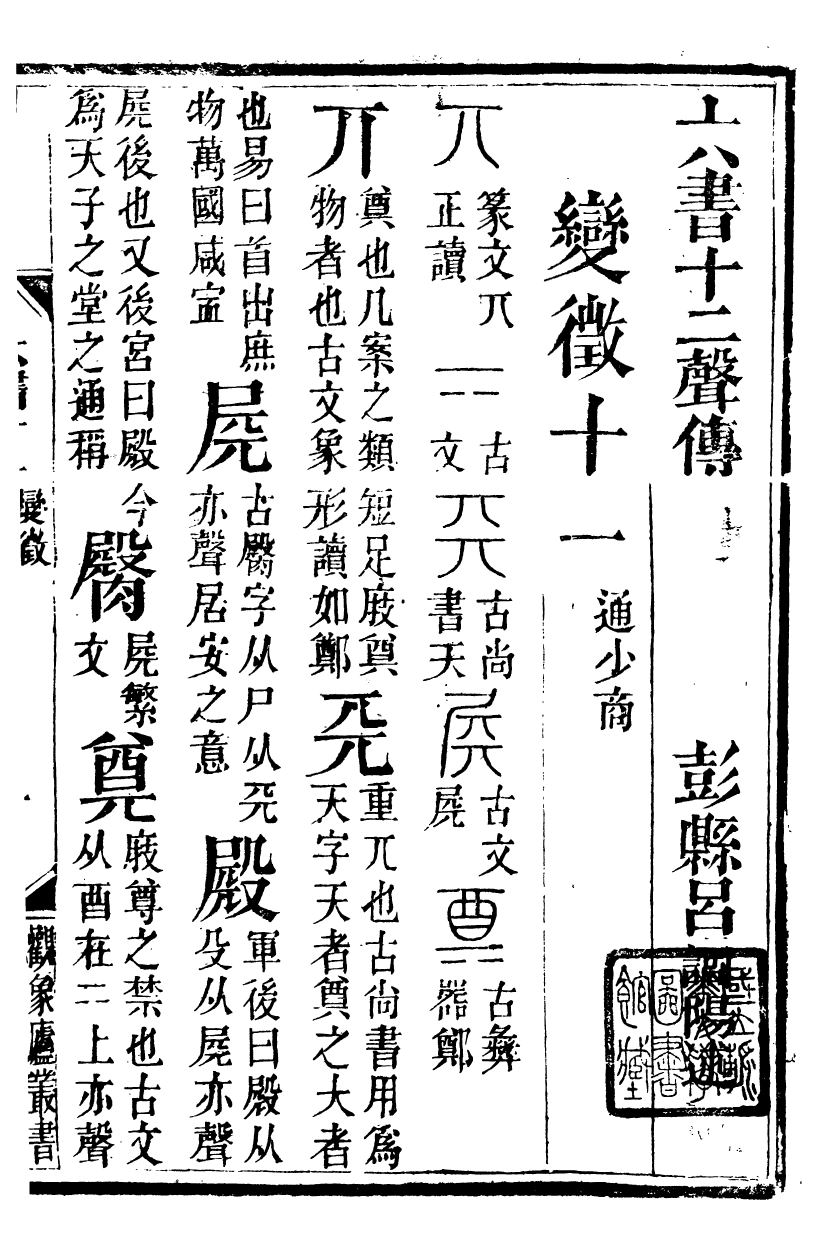 六書十二聲傳 彭縣呂調陽
變徵十一 通少商
丌 篆文丌正讀 二 古文 𠀘 古尚書天 𡱒 古文𡱒 奠 古彝器鄭
丌 奠也几案之類短足庋奠物者也古文象形讀如鄭 𠀘 重丌也古尚書用爲天字天者奠之大者
也易曰首出庶物萬國咸寍 𡱒 古臋字从尸从𠀘亦聲居安之意 殿 軍後曰殿从殳从𡱒亦聲
𡱒後也又後宮曰殿今爲天子之堂之通稱 臋 𡱒繁文 奠 庋尊之禁也古文从酉在二上亦聲
變徵 觀象廬叢書
圖書館藏